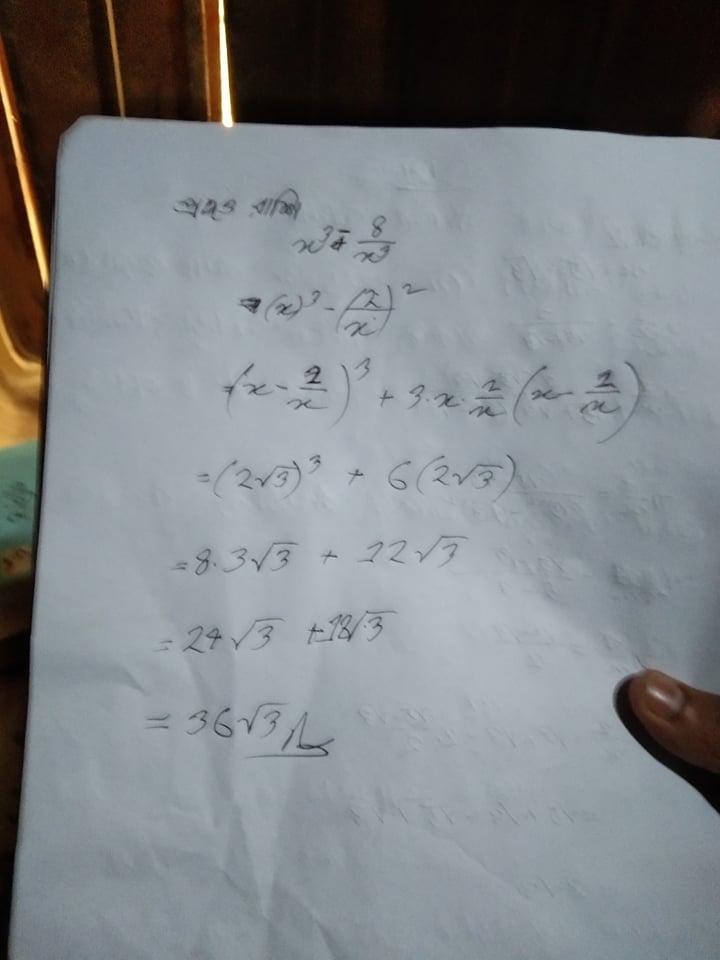 প্রদত্ত রাশি
x³ - 8/x³
= (x)³ - (2/x)²
= (x - 2/x)³ + 3·x·2/x (x - 2/x)
= (2√3)³ + 6(2√3)
= 8·3√3 + 12√3
= 24√3 + 12√3
= 36√3 Ans